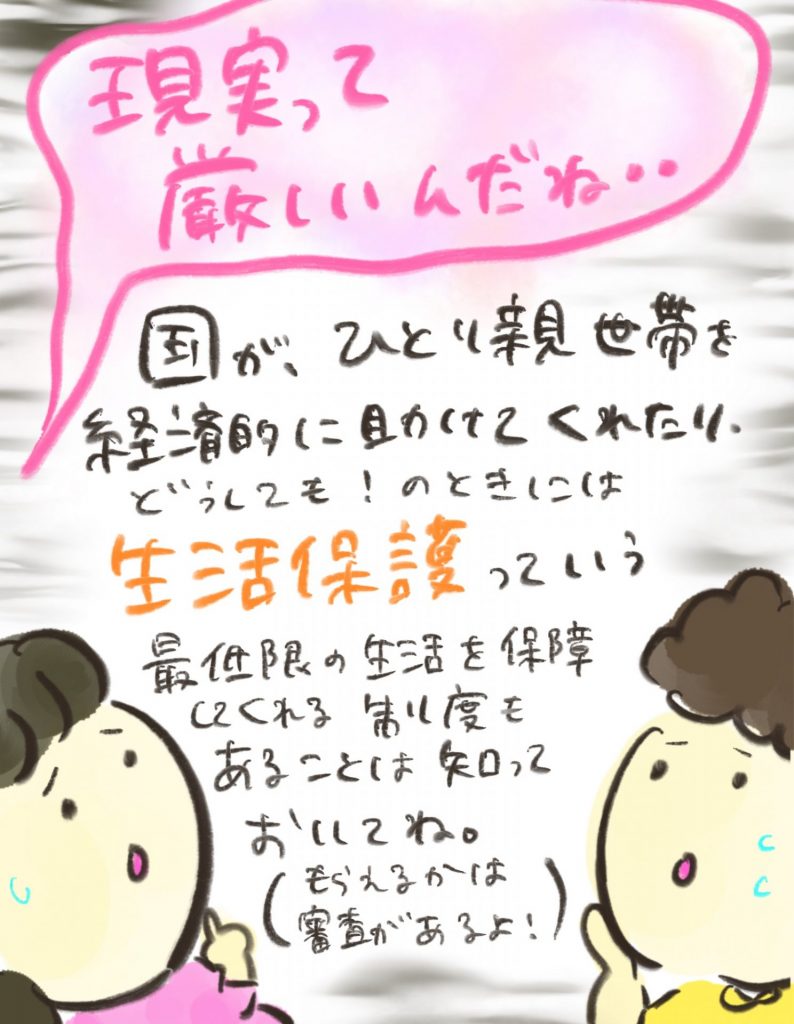 現実って
厳しいんだね··
国が、ひとり親世帯を
経済的に助けてくれたり、
どうしても!のときには
生活保護っていう
最低限の生活を保障
してくれる制度も
あることは知って
おいてね。
(もらえるかは
審査があるよ!)